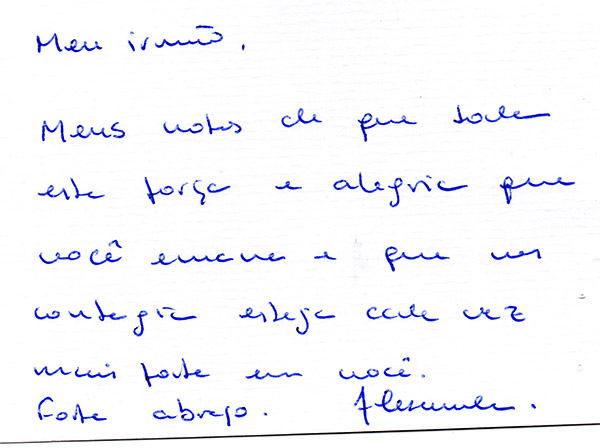 Meu irmão,
Meus votos de que toda
esta força e alegria que
você emana e que nos
contagia esteja cada vez
mais forte em você.
Forte abraço. Alexandre.